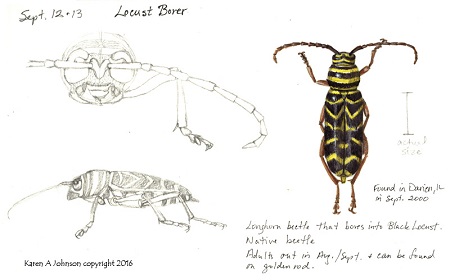 Sept. 12 + 13
Locust Borer
actual
size
Found in Darien, IL
in Sept. 2000
Longhorn beetle that bores into Black Locust.
Native beetle
Adults out in Aug./Sept. + can be found
on goldenrod.
Karen A Johnson copyright 2016